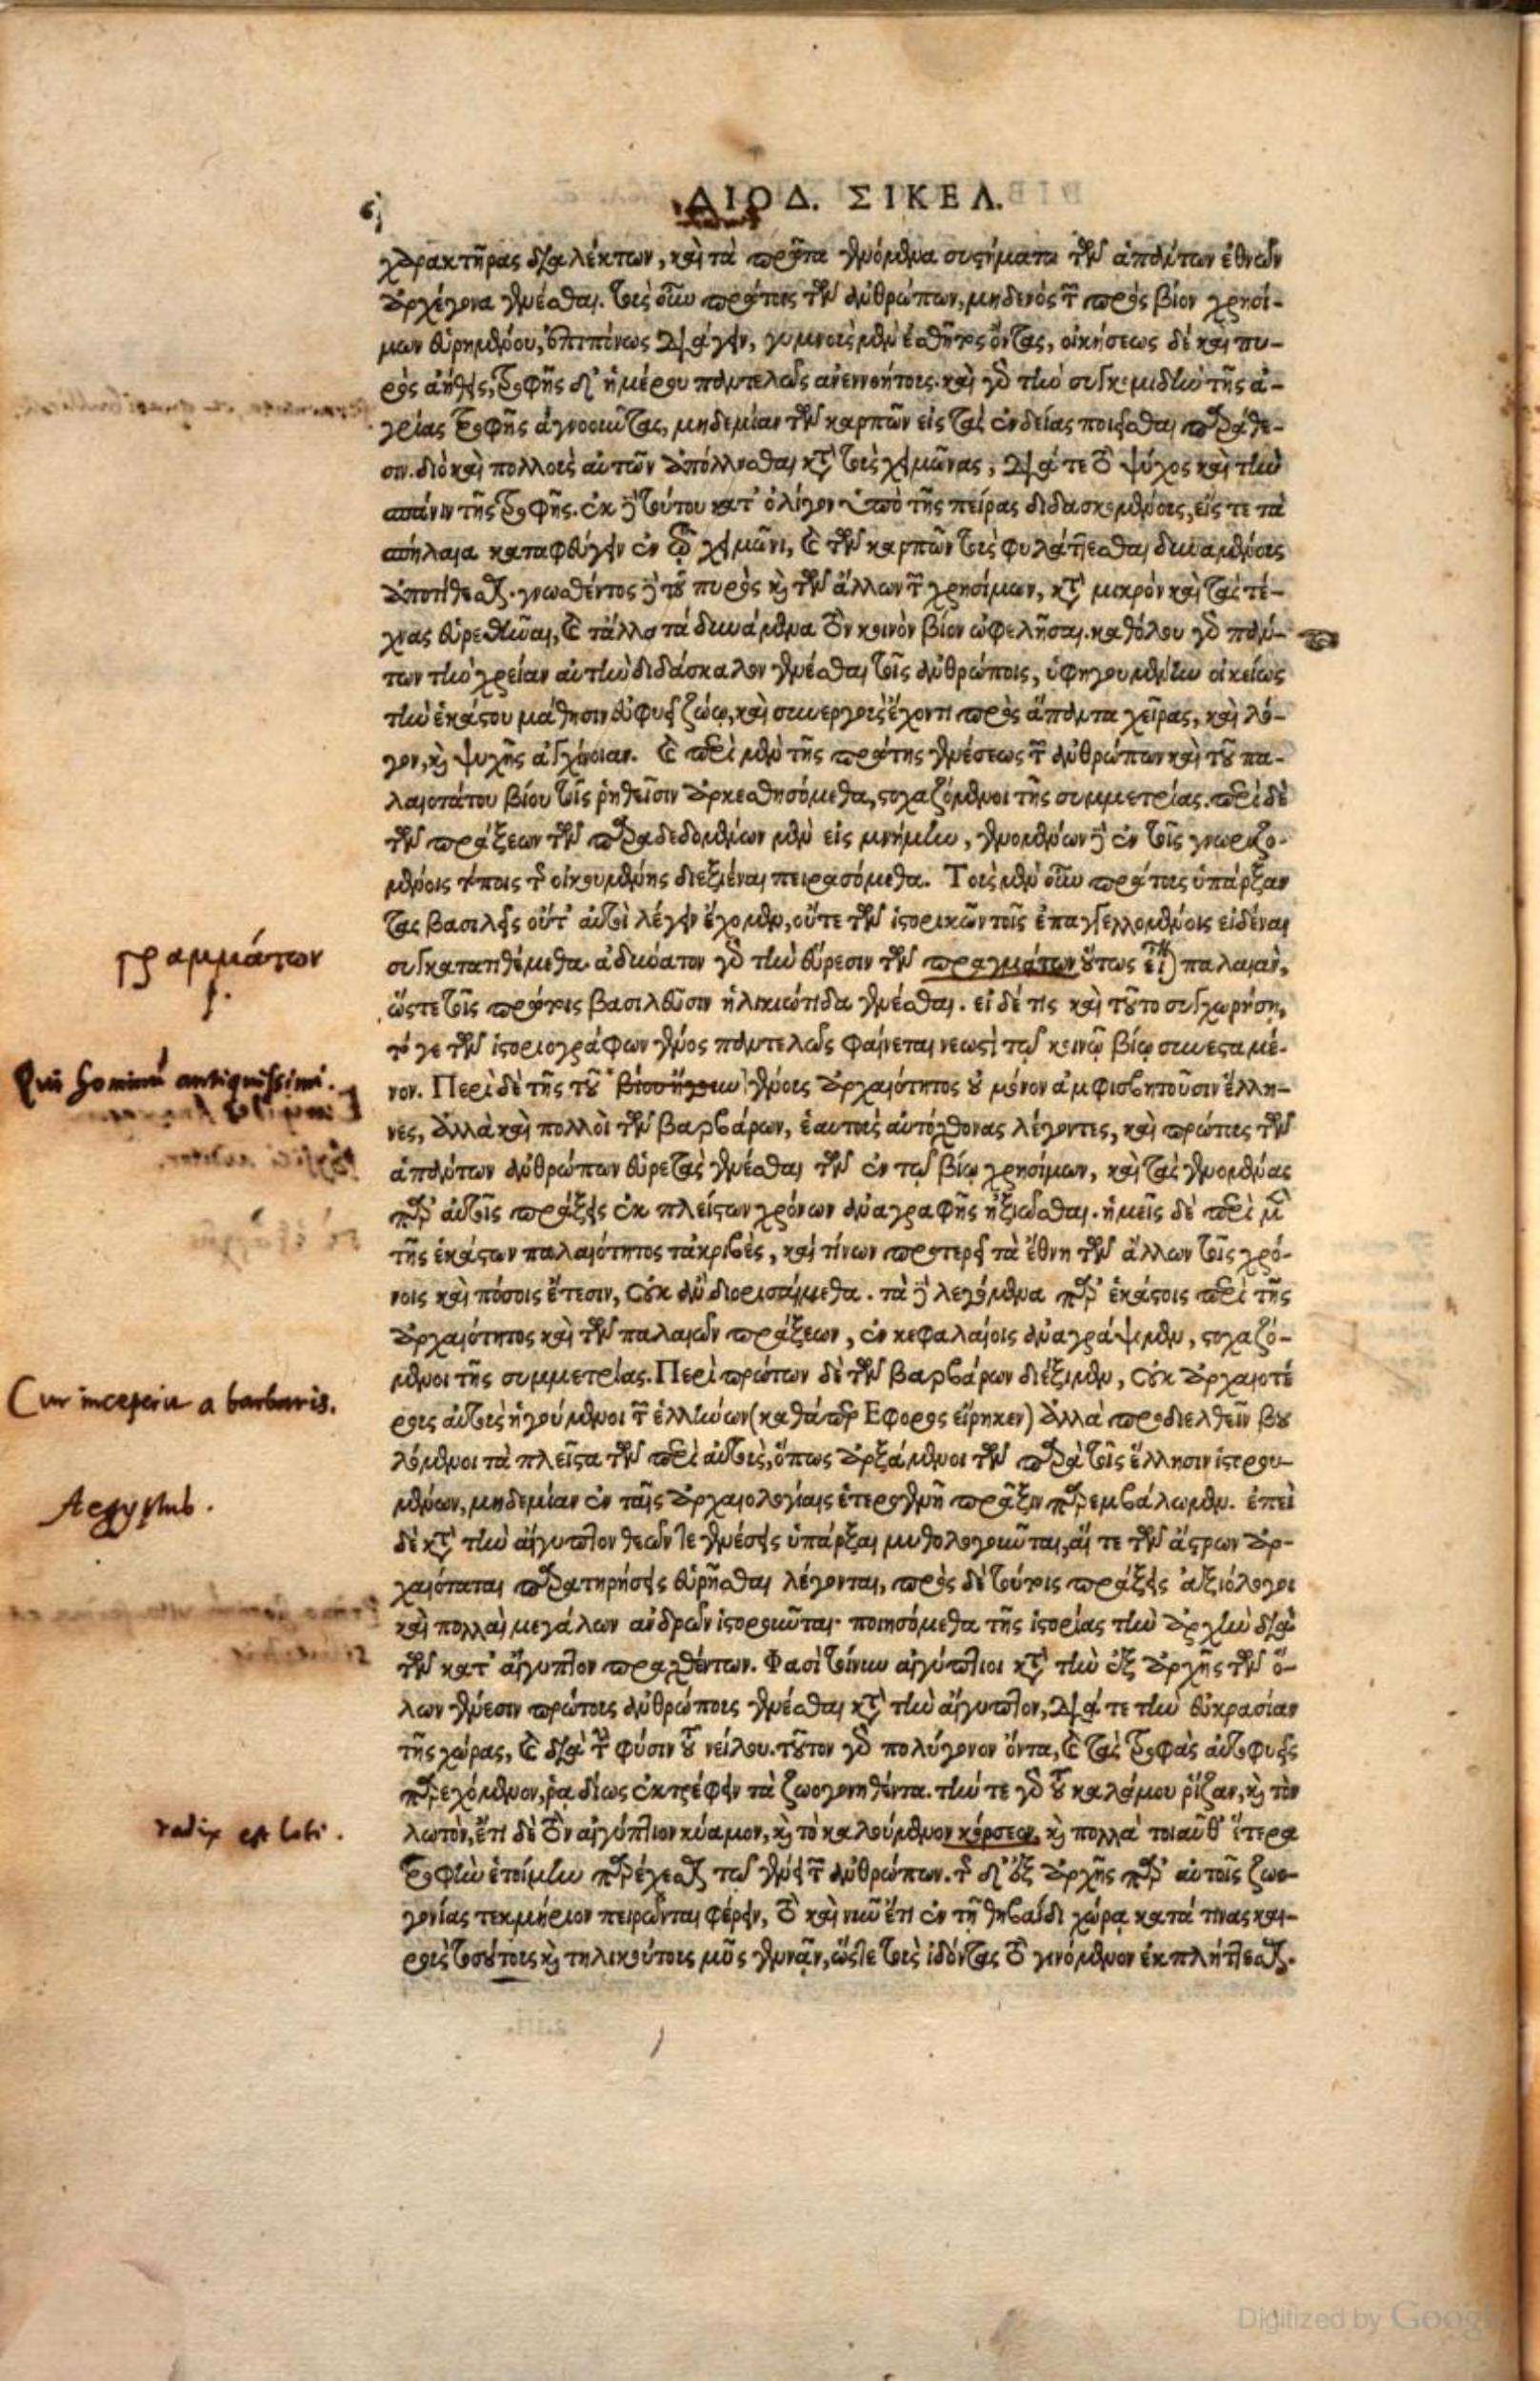 6
ΔΙΟΔ. ΣΙΚΕΛ.
χαρακτῆρας διαλέκτων, καὶ τὰ πρῶτα γενόμενα συστήματα τῶν ἁπάντων ἐθνῶν
ἀρχέγονα γενέσθαι. τοὺς οὖν πρώτους τῶν ἀνθρώπων, μηδενὸς τῶν πρὸς βίον χρησί-
μων εὑρημένου, ἐπιπόνως διάγειν, γυμνοὺς μὲν ἐσθῆτος ὄντας, οἰκήσεως δὲ καὶ πυ-
ρὸς ἀήθεις, τροφῆς δ' ἡμέρου παντελῶς ἀνεννοήτους. καὶ γὰρ τὴν συγκομιδὴν τῆς ἀ-
γρίας τροφῆς ἀγνοοῦντας, μηδεμίαν τῶν καρπῶν εἰς τὰς ἐνδείας ποιεῖσθαι παράθε-
σιν. διὸ καὶ πολλοὺς αὐτῶν ἀπόλλυσθαι κατὰ τοὺς χειμῶνας, διά τε τὸ ψύχος καὶ τὴν
σπάνιν τῆς τροφῆς. ἐκ δὲ τούτου κατ' ὀλίγον ὑπὸ τῆς πείρας διδασκομένους, εἴς τε τὰ
σπήλαια καταφεύγειν ἐν τῷ χειμῶνι, καὶ τῶν καρπῶν τοὺς φυλάττεσθαι δυναμένους
ἀποτίθεσθαι. γνωσθέντος δὲ τοῦ πυρὸς καὶ τῶν ἄλλων τῶν χρησίμων, κατὰ μικρὸν καὶ τὰς τέ-
χνας εὑρεθῆναι, καὶ τἄλλα τὰ δυνάμενα τὸν κοινὸν βίον ὠφελῆσαι. καθόλου γὰρ πάν-
των τὴν χρείαν αὐτὴν διδάσκαλον γενέσθαι τοῖς ἀνθρώποις, ὑφηγουμένην οἰκείως
τὴν ἑκάστου μάθησιν εὐφυεῖ ζώῳ, καὶ συνεργοὺς ἔχοντι πρὸς ἅπαντα χεῖρας, καὶ λό-
γον, καὶ ψυχῆς ἀγχίνοιαν. καὶ περὶ μὲν τῆς πρώτης γενέσεως τῶν ἀνθρώπων καὶ τοῦ πα-
λαιοτάτου βίου τοῖς ῥηθεῖσιν ἀρκεσθησόμεθα, στοχαζόμενοι τῆς συμμετρίας. περὶ δὲ
τῶν πράξεων τῶν παραδεδομένων μὲν εἰς μνήμην, γενομένων δὲ ἐν τοῖς γνωριζο-
μένοις τόποις τῆς οἰκουμένης διεξιέναι πειρασόμεθα. Τοὺς μὲν οὖν πρώτους ὑπάρξαν
τας βασιλεῖς οὔτ' αὐτοὶ λέγειν ἔχομεν, οὔτε τῶν ἱστορικῶν τοῖς ἐπαγγελλομένοις εἰδέναι
συγκατατιθέμεθα. ἀδύνατον γὰρ τὴν εὕρεσιν τῶν πραγμάτων οὕτως εἶναι παλαιὰν,
ὥστε τοῖς πρώτοις βασιλεῦσιν ἡλικιώτιδα γενέσθαι. εἰ δέ τις καὶ τοῦτο συγχωρήσῃ,
τό γε τῶν ἱστοριογράφων γένος παντελῶς φαίνεται νεωστὶ τῷ κοινῷ βίῳ συνεσταμέ-
νον. Περὶ δὲ τῆς τοῦ γένους ἀρχαιότητος οὐ μόνον ἀμφισβητοῦσιν ἕλλη-
νες, ἀλλὰ καὶ πολλοὶ τῶν βαρβάρων, ἑαυτοὺς αὐτόχθονας λέγοντες, καὶ πρώτους τῶν
ἁπάντων ἀνθρώπων εὑρετὰς γενέσθαι τῶν ἐν τῷ βίῳ χρησίμων, καὶ τὰς γενομένας
παρ' αὐτοῖς πράξεις ἐκ πλείστων χρόνων ἀναγραφῆς ἠξιῶσθαι. ἡμεῖς δὲ περὶ μὲν
τῆς ἑκάστων παλαιότητος τἀκριβὲς, καὶ τίνων προτερεῖ τὰ ἔθνη τῶν ἄλλων τοῖς χρό-
νοις καὶ πόσοις ἔτεσιν, οὐκ ἂν διορισαίμεθα. τὰ δὲ λεγόμενα παρ' ἑκάστοις περὶ τῆς
ἀρχαιότητος καὶ τῶν παλαιῶν πράξεων, ἐν κεφαλαίοις ἀναγράψομεν, στοχαζό-
μενοι τῆς συμμετρίας. Περὶ πρώτων δὲ τῶν βαρβάρων διέξιμεν, οὐκ ἀρχαιοτέ
ρους αὐτοὺς ἡγούμενοι τῶν ἑλλήνων (καθάπερ Εφορος εἴρηκεν) ἀλλὰ προδιελθεῖν βου
λόμενοι τὰ πλεῖστα τῶν περὶ αὐτοὺς, ὅπως ἀρξάμενοι τῶν παρὰ τοῖς ἕλλησιν ἱστορου-
μένων, μηδεμίαν ἐν ταῖς ἀρχαιολογίαις ἑτερογενῆ πρᾶξιν παρεμβάλωμεν. ἐπεὶ
δὲ κατὰ τὴν αἴγυπτον θεῶν τε γενέσεις ὑπάρξαι μυθολογοῦνται, αἵ τε τῶν ἄστρων ἀρ-
χαιόταται παρατηρήσεις εὑρῆσθαι λέγονται, πρὸς δὲ τούτοις πράξεις ἀξιόλογοι
καὶ πολλαὶ μεγάλων ἀνδρῶν ἱστοροῦνται. ποιησόμεθα τῆς ἱστορίας τὴν ἀρχὴν διὰ
τῶν κατ' αἴγυπτον πραχθέντων. Φασὶ τοίνυν αἰγύπτιοι κατὰ τὴν ἐξ ἀρχῆς τῶν ὅ-
λων γένεσιν πρώτους ἀνθρώπους γενέσθαι κατὰ τὴν αἴγυπτον, διά τε τὴν εὐκρασίαν
τῆς χώρας, καὶ διὰ τὴν φύσιν τοῦ νείλου. τοῦτον γὰρ πολύγονον ὄντα, καὶ τὰς τροφὰς αὐτοφυεῖς
παρεχόμενον, ῥᾳδίως ἐκτρέφειν τὰ ζωογονηθέντα. τήν τε γὰρ τοῦ καλάμου ῥίζαν, καὶ τὸν
λωτὸν, ἔτι δὲ τὸν αἰγύπτιον κύαμον, καὶ τὸ καλούμενον κόρσεον, καὶ πολλὰ τοιαῦθ' ἕτερα
τροφὴν ἑτοίμην παρέχεσθαι τῷ γένει τῶν ἀνθρώπων. τῆς δ' ἐξ ἀρχῆς παρ' αὐτοῖς ζωο-
γονίας τεκμήριον πειρῶνται φέρειν, τὸ καὶ νῦν ἔτι ἐν τῇ θηβαΐδι χώρᾳ κατά τινας και-
ροὺς τοσούτους καὶ τηλικούτους μῦς γεννᾶν, ὥστε τοὺς ἰδόντας τὸ γινόμενον ἐκπλήττεσθαι.
γραμμάτων
Qui hominū antiquissimi.
Cur inceperit a barbaris.
Aegyptus.
radix est loti.
Digitized by Google